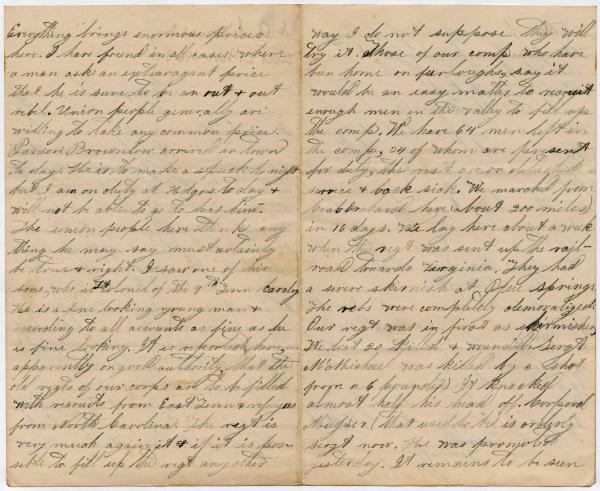 Everything brings enormous prices
here. I have found in all cases where
a man asks an extravagant price
that he is sure to be an out & out
rebel. Union people generally are
willing to take any common price.
Parson Brownlow arrived in town
to day. He is to make a speech to night
but I am on duty at Hdqrs to day &
will not be able to go to hear him.
The union people here think any
thing he may say must certainly
be true & right. I saw one of his
sons, who is Lt Colonel of the 9th Tenn cavalry
He is a fine looking young man &
according to all accounts as fine as he
is fine looking. It is reported here,
apparently on good authority, that the
old regts of our corps are to be filled
with recruits from East Tenn & refugees
from North Carolina. The regt is
very much again it & if it is pos-
sible to fill up the regt any other
way I do not suppose they will
try it. Those of our comp who have
been home on furloughs, say it
would be an easy matter to recruit
enough men in the valley to fill up
the comp. We have 64 men left in
the comp, 24 of whom are present
for duty, the rest are on detached
service & back sick. We marched from
Crab Orchard here (about 200 miles)
in 16 days. We lay here about a week
when the regt was sent up the rail-
road towards Virginia. They had
a severe skirmish at Blue Springs
The rebs were completely demoralized.
Our regt was in front as skirmishers
We lost 20 killed & wounded. Sergt
was killed by a shot
from a 6 pounder. It knocked
almost half his head off. Corporal
(that used to be) is orderly
sergt now. He was promoted
yesterday. It remains to be seen